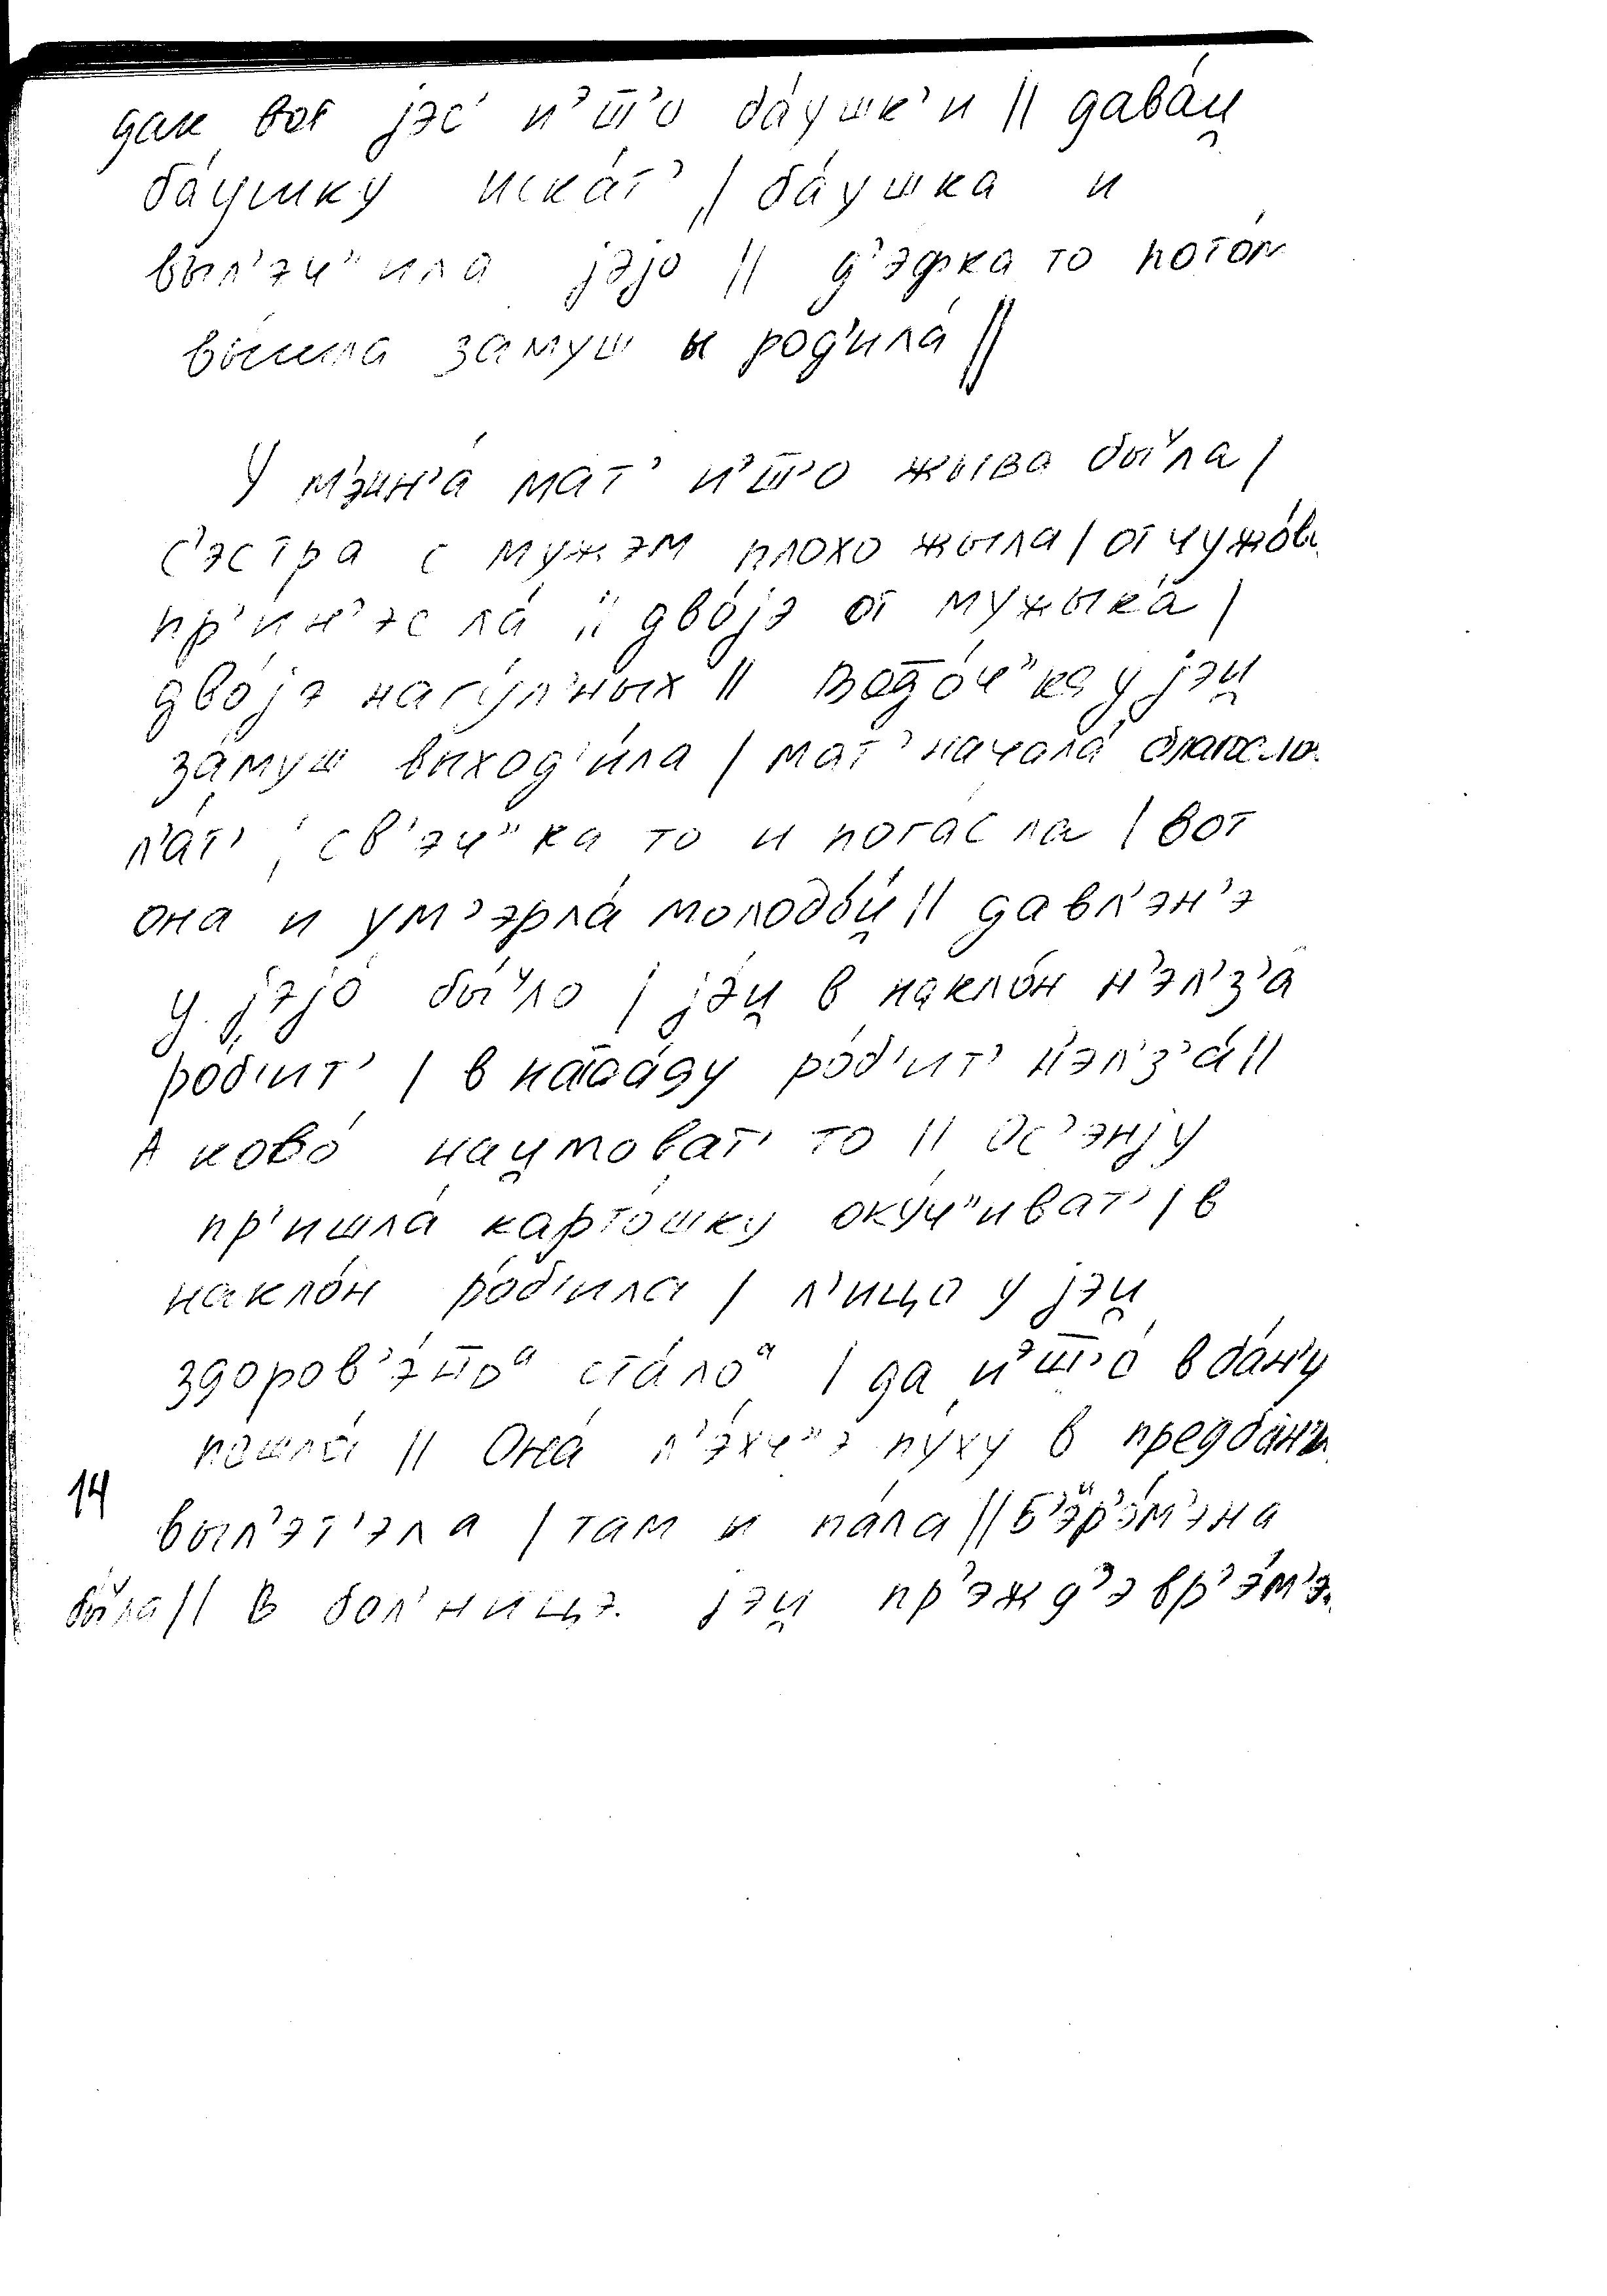 дак вот јэс' иэ̄ш'о ба́ушк'и || дава́й̯
ба́ушку иска́т' || ба́ушка и
вы́л'эч"ила јэјо́ || д'э́фка то пото́м
вы́шла за́муш ы род'ила́ ||
У м'эин'а́ мат' иэ̄ш'о жыва бы́ла |
с'эстра с мужэм плохо жыла | от чужо́в
пр'ин'эсла́ || дво́јэ от мужыка́ |
дво́јэ нагу́л'ных || у јэй̯
за́муш выход'и́ла | мат' начала́ благосло
л'а́т' | св'э́ч"ка то и пога́сла | вот
она и ум'эрла́ молодо́й̯ || давл'эн'э
у јэјо́ бы́ло | јэ́й̯ в накло́н н'эл'з'а́
ро́б'ит' | в ро́б'ит' н'эл'з'а́ ||
А ково́ най̯моват' то || Ос'энју
пр'ишла́ карто́шку оку́ч"иват' | в
накло́н ро́б'ила | л'ицо у јэй̯
здоров'э́нно ста́ло | да иэ̄ш'о́ в ба́н'у
пошла́ || Она́ л'э́хч"э пу́ху в предба́н'и
выл'эт'эла | там и па́ла || Б'эр'э́м'эна
бы́ла || В бол'ницэ јэй̯ пр'эжд'э вр'э́м'э
14